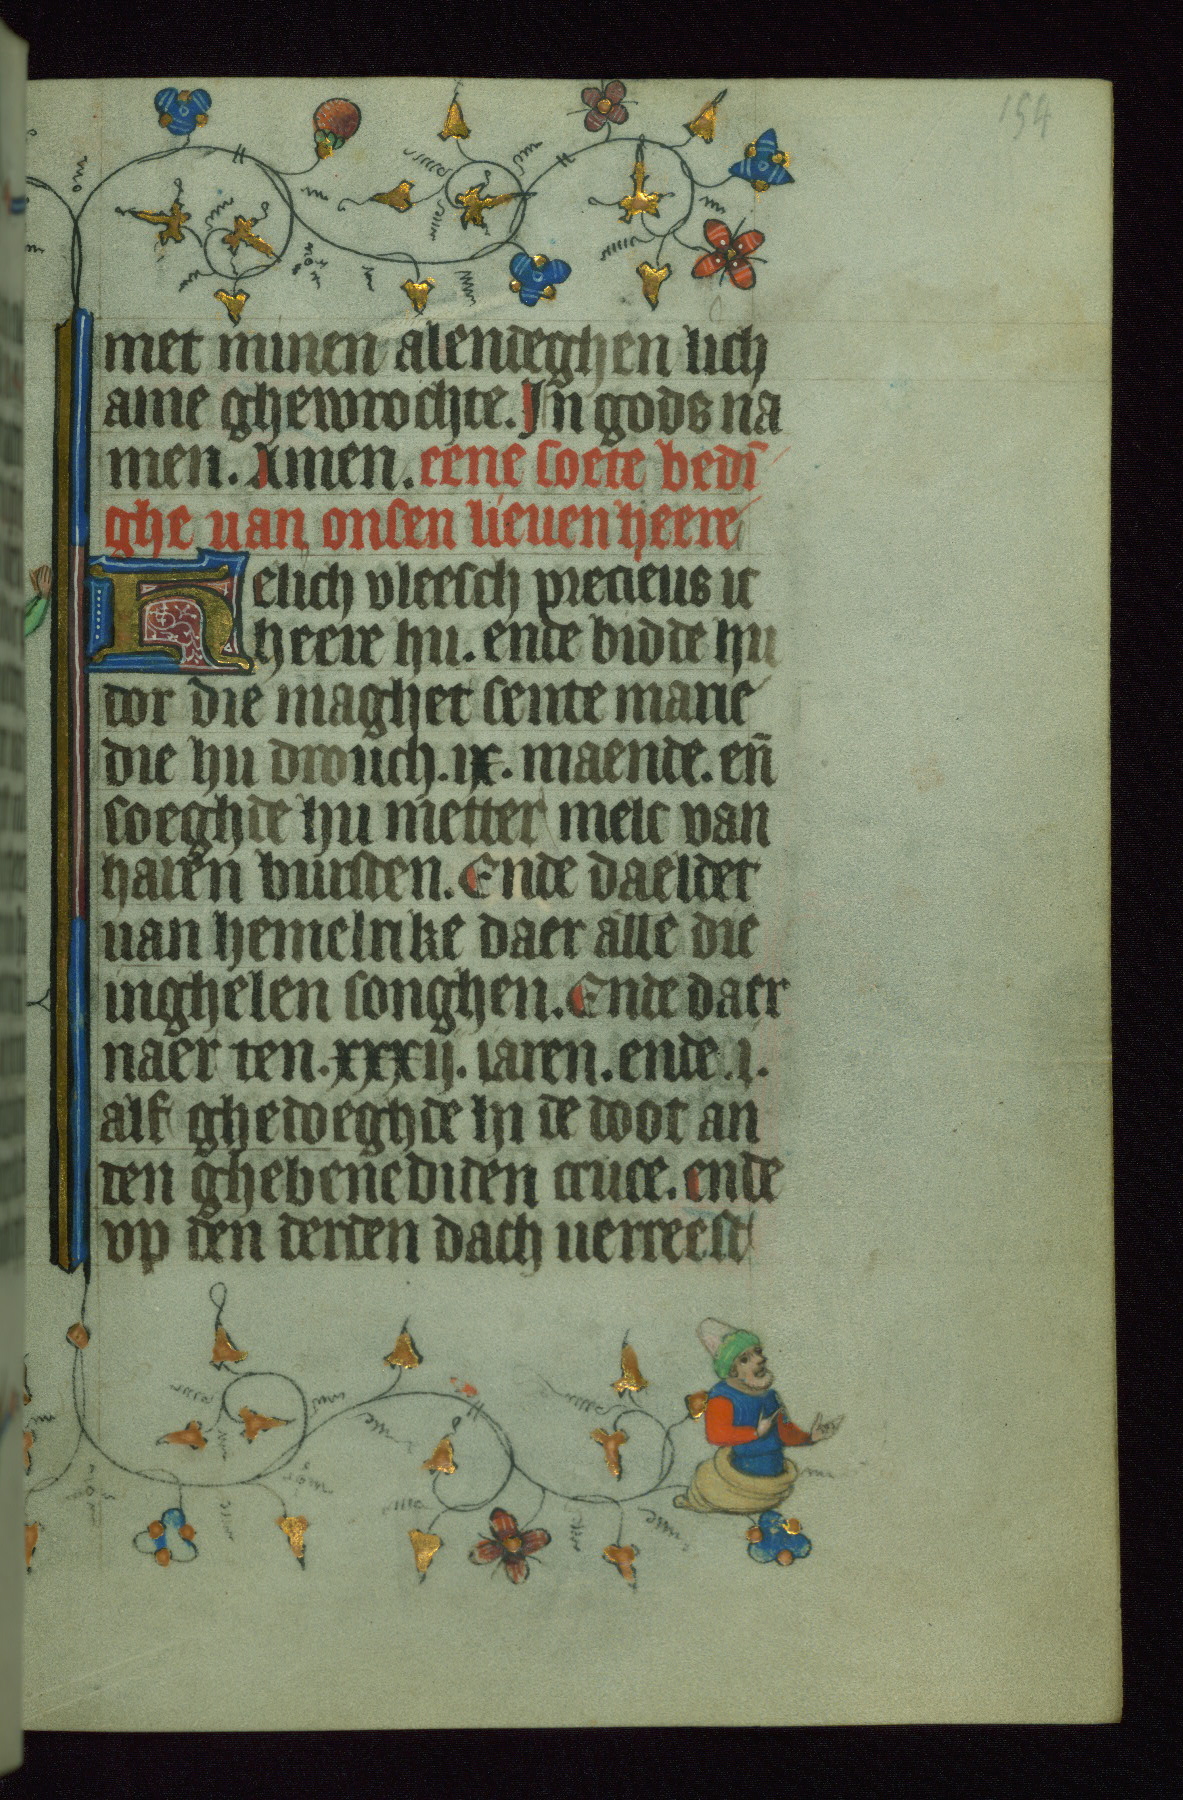 154
met minen alendeghen lich
ame ghewrochte. Jn gods na
men. Amen. eene soete bedī
ghe uan onsen lieuen heere
Helich vleesch precieus ic
heere hu. ende bidde hu
dor die maghet sente marie
die hu drouch .ix. maende. en̄
soeghde hu metter melc van
haren bursten. Ende daeldet
uan hemelrike daer alle die
inghelen songhen. Ende daer
naer ten .xxxij. iaren. ende .i.
alf ghedoeghde hi de doot an
den ghebenediden cruce. ende
vp den derden dach uerreest